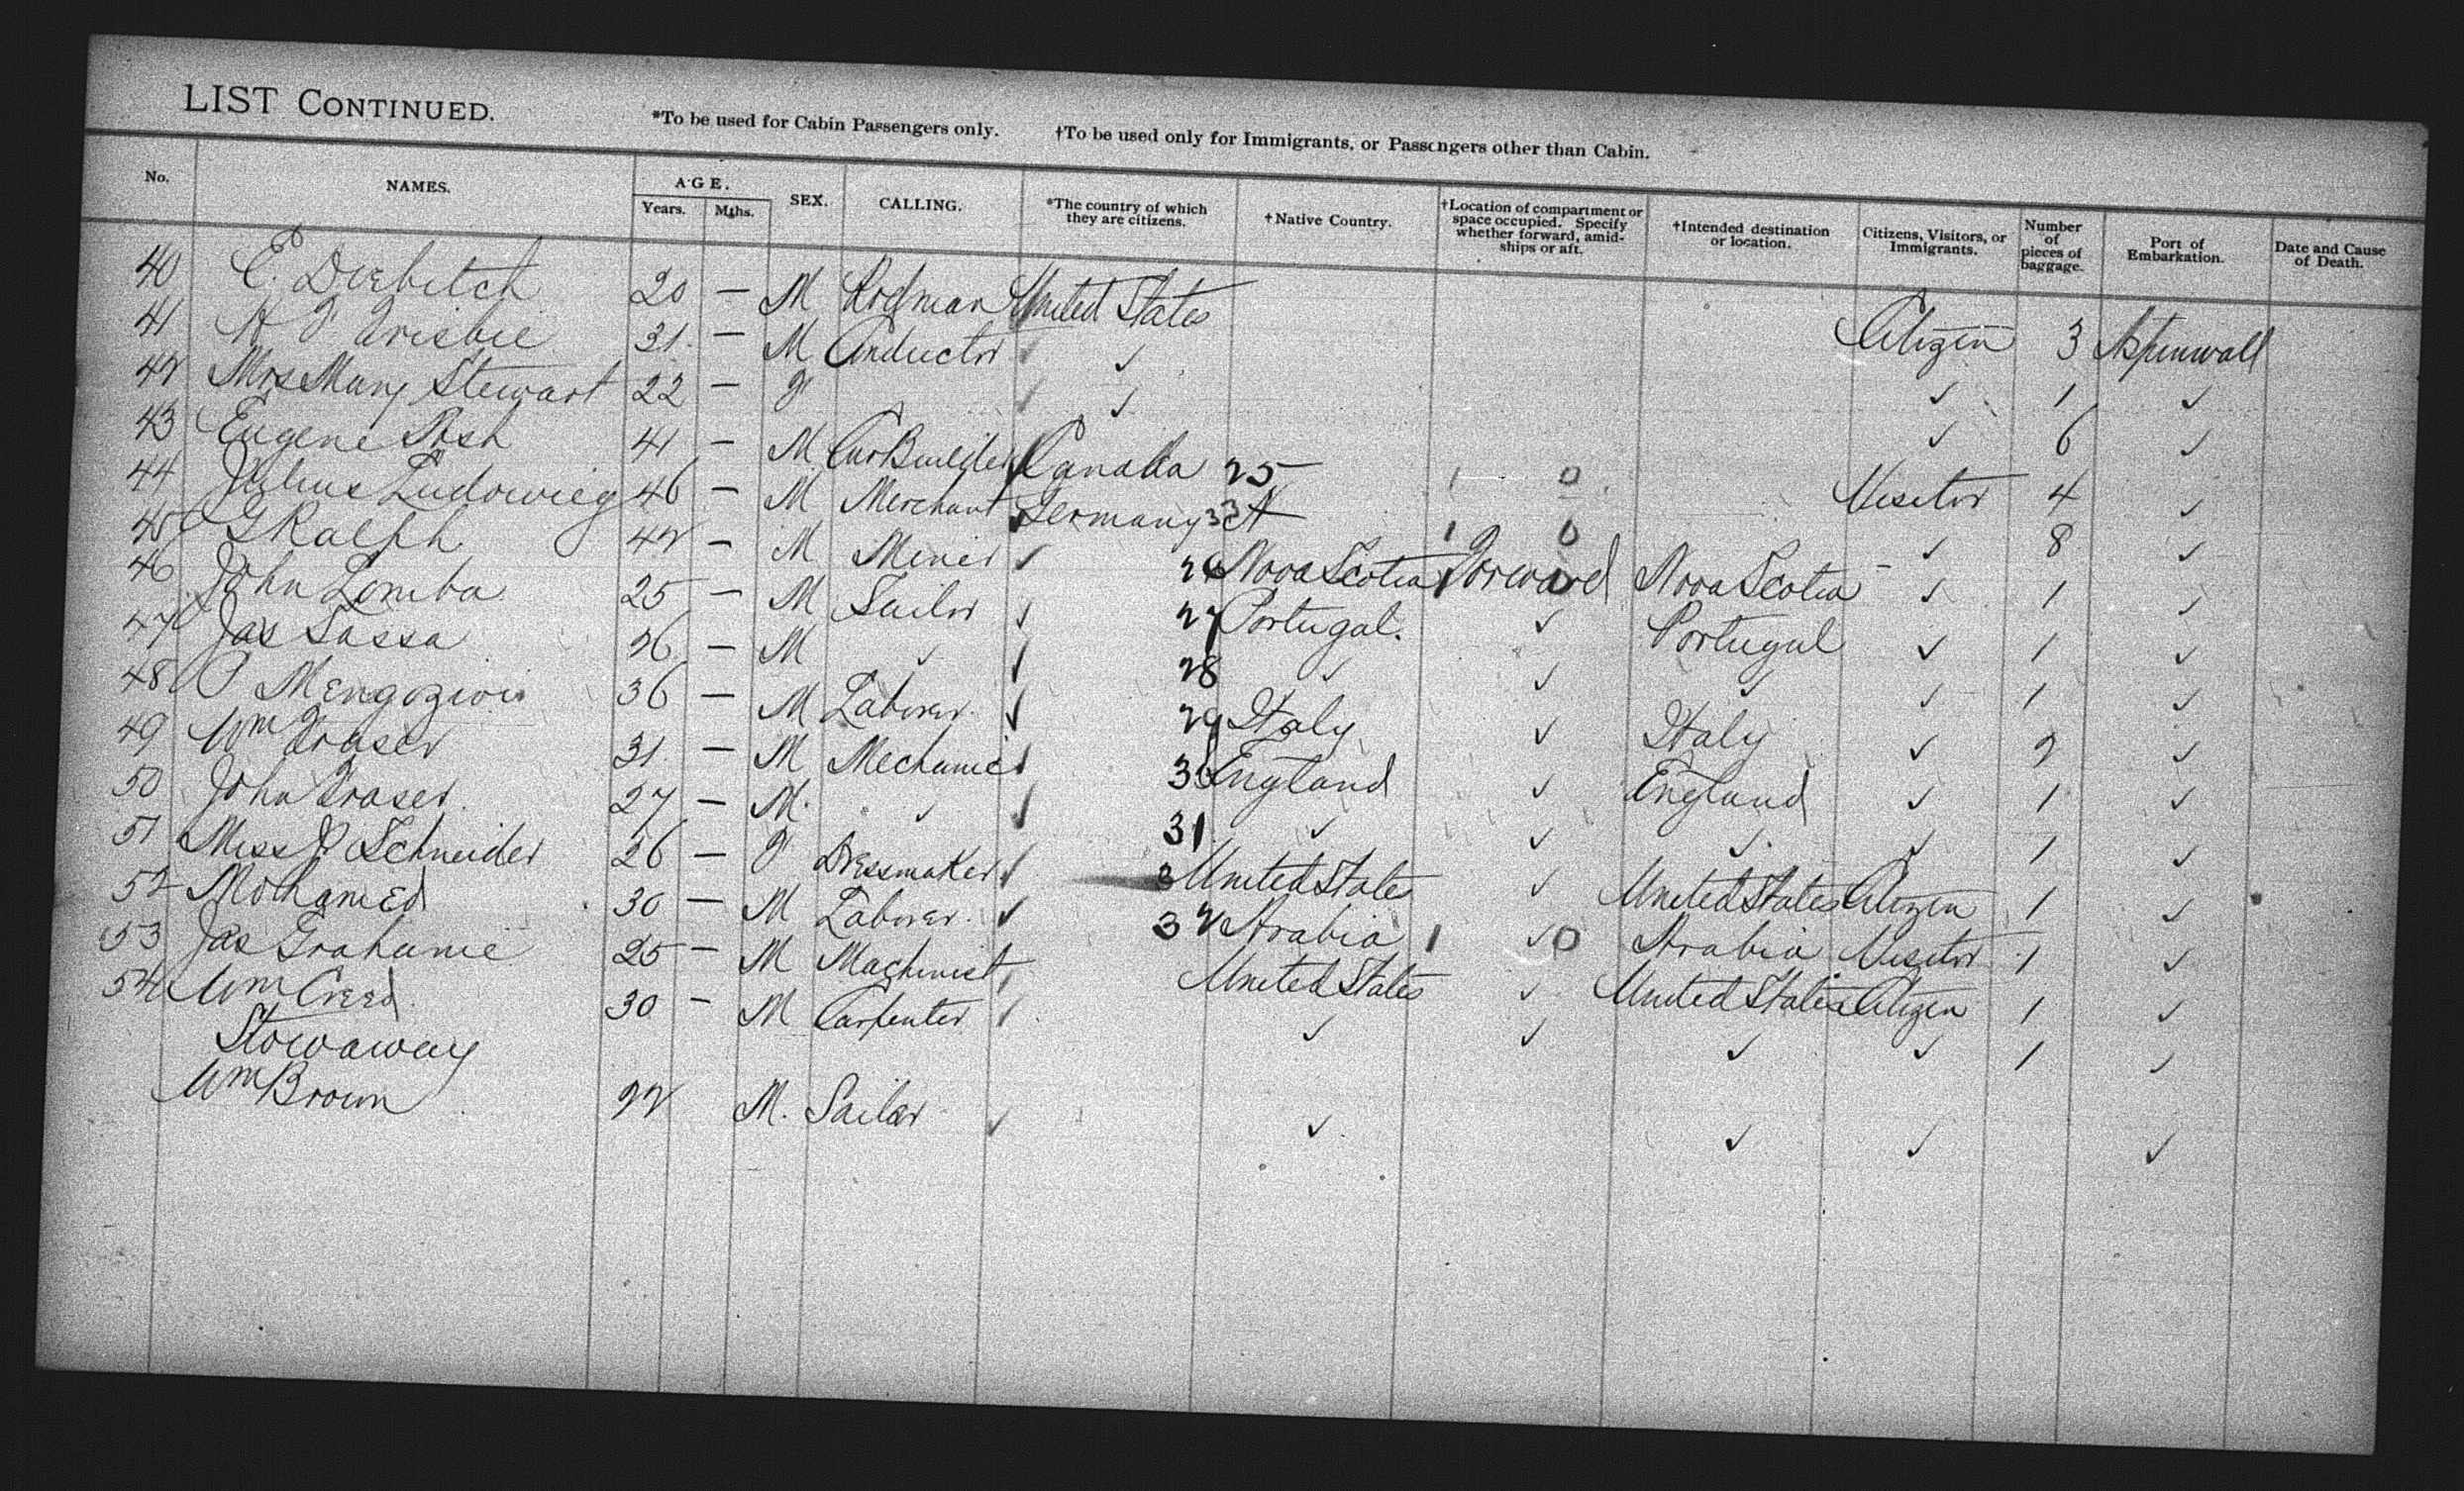 LIST CONTINUED.
*To be used for Cabin Passengers only. †To be used only for Immigrants, or Passengers other than Cabin.
No. NAMES. AGE. Years. Mths. SEX. CALLING. *The country of which they are citizens. †Native Country. †Location of compartment or space occupied. Specify whether forward, amidships or aft. †Intended destination or location. Citizens, Visitors, or Immigrants. Number of pieces of baggage. Port of Embarkation. Date and Cause of Death.
40 E. 20 — M Rodman United States Citizen 3 Aspinwall
41 H F Frisbie 31 — M Conductor ✓ ✓ 1 ✓
42 Mrs Mary Stewart 22 — F ✓ ✓ 6 ✓
43 Eugene 41 — M Car Builder Canada 25 1 0 Visitor 4 ✓
44 Julius Ludowieg 46 — M Merchant Germany 33 1 0 ✓ 8 ✓
45 G Ralph 42 — M Miner ✓ 26 Nova Scotia Forward Nova Scotia ✓ 1 ✓
46 John Lomba 25 — M Sailor ✓ 27 Portugal. ✓ Portugal ✓ 1 ✓
47 Jas Sassa 26 — M ✓ ✓ 28 ✓ ✓ ✓ ✓ 1 ✓
48 P 36 — M Laborer ✓ 29 Italy ✓ Italy ✓ 2 ✓
49 Wm Fraser 31 — M Mechanic ✓ 30 England ✓ England ✓ 1 ✓
50 John Fraser 27 — M. ✓ ✓ 31 ✓ ✓ ✓ ✓ 1 ✓
51 Miss Schneider 26 — F Dressmaker ✓ United States ✓ United States Citizen 1 ✓
52 Mohamed 30 — M Laborer ✓ 32 Arabia 1 ✓ 0 Arabia Visitor 1 ✓
53 Jas Grahame 25 — M Machinist United States ✓ United States Citizen 1 ✓
54 Wm Creed 30 — M Carpenter ✓ ✓ ✓ ✓ 1 ✓
Stowaway
Wm Brown 22 M. Sailor ✓ ✓ ✓ ✓ ✓